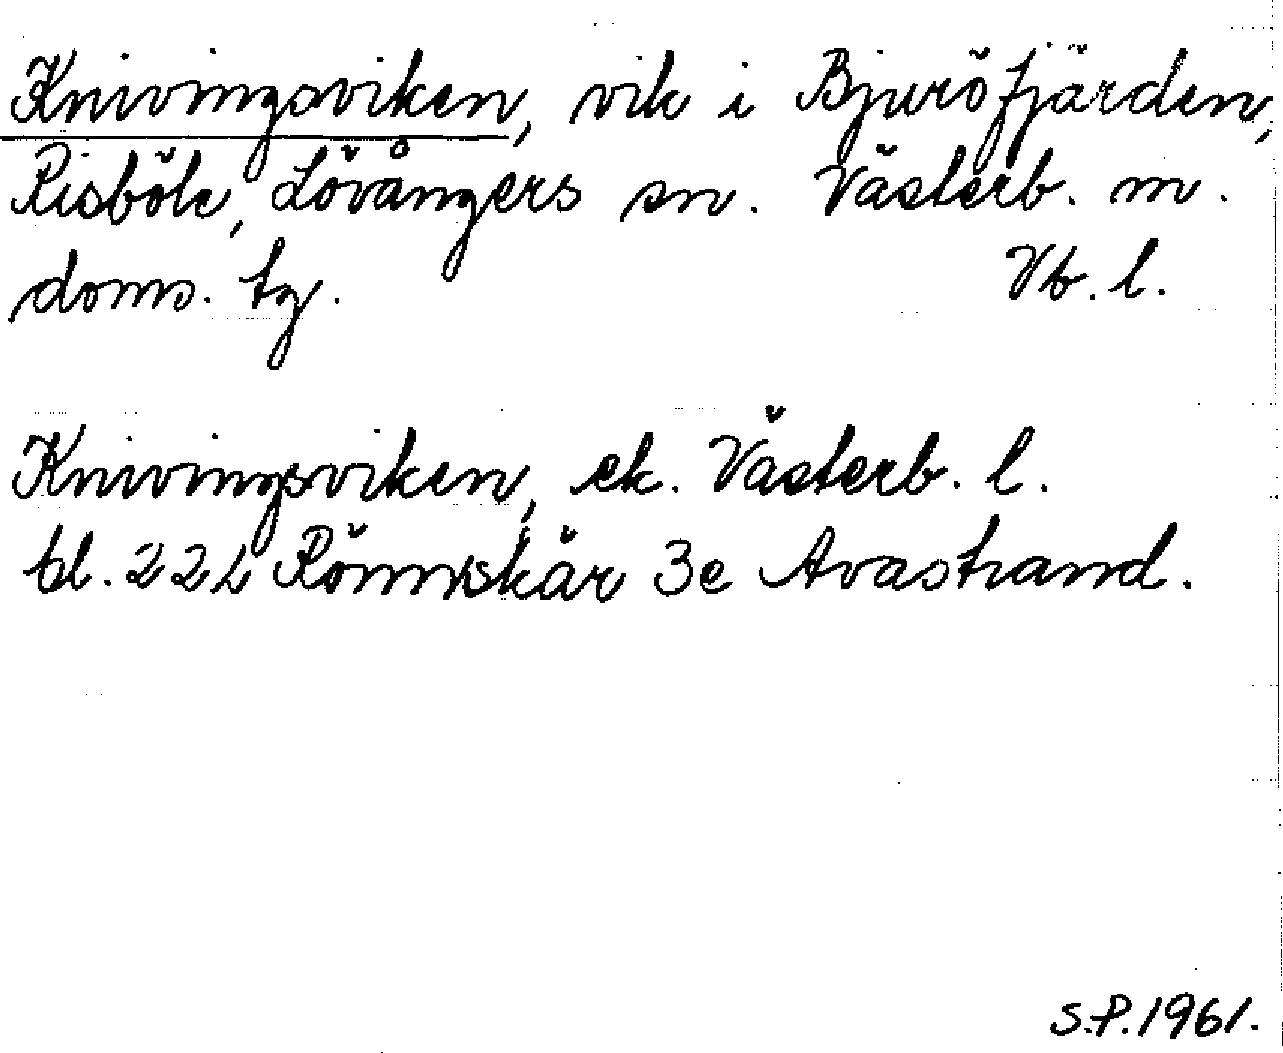 Knivingsviken, vik i Bjuröfjärden,
Risböle, Lövångers sn. Västerb. m.
doms. tg. Vb. l.
Knivingsviken, ek. Västerb. l.
bl. 222 Rönnskär 3e Avastrand.
S.P. 1961.